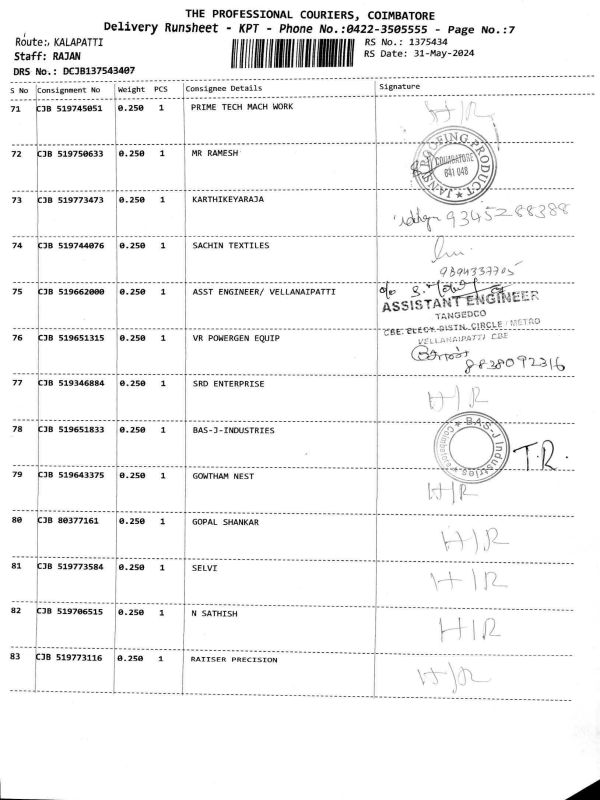 THE PROFESSIONAL COURIERS, COIMBATORE
Delivery Runsheet - KPT - Phone No.:0422-3505555 - Page No.:7
Route:, KALAPATTI
RS No.: 1375434
Staff: RAJAN
RS Date: 31-May-2024
DRS No.: DCJB137543407
S No Consignment No Weight PCS Consignee Details Signature
71 CJB 519745051 0.250 1 PRIME TECH MACH WORK H/R
72 CJB 519750633 0.250 1 MR RAMESH
JANS ROOFING PRODUCT
COIMBATORE
641 048
73 CJB 519773473 0.250 1 KARTHIKEYARAJA 9345288388
74 CJB 519744076 0.250 1 SACHIN TEXTILES
9894337705
75 CJB 519662000 0.250 1 ASST ENGINEER/ VELLANAIPATTI
ASSISTANT ENGINEER
TANGEDCO
CBE. ELECY. DISTN. CIRCLE / METRO
VELLANAIPATTI CBE
76 CJB 519651315 0.250 1 VR POWERGEN EQUIP
8838092316
77 CJB 519346884 0.250 1 SRD ENTERPRISE H/R
78 CJB 519651833 0.250 1 BAS-J-INDUSTRIES
BAS-J Industries
Coimbatore
T.R.
79 CJB 519643375 0.250 1 GOWTHAM NEST H/R
80 CJB 80377161 0.250 1 GOPAL SHANKAR H/R
81 CJB 519773584 0.250 1 SELVI H/R
82 CJB 519706515 0.250 1 N SATHISH H/R
83 CJB 519773116 0.250 1 RAIISER PRECISION H/R